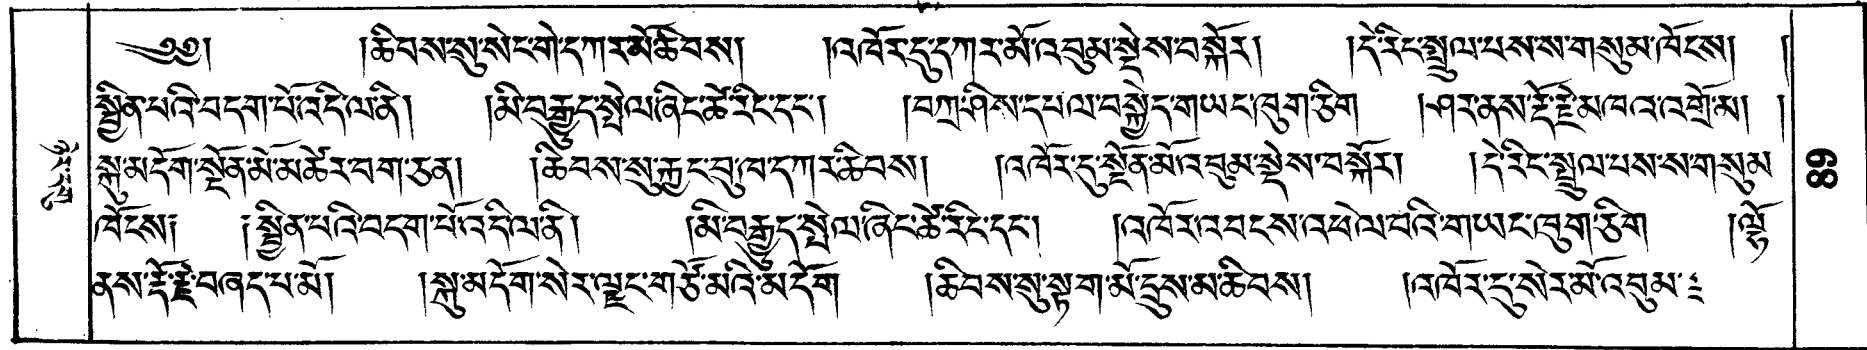 ༄༅། །ཆིབས་སུ་སེང་གེ་དཀར་མོ་ཆིབས། །འཁོར་དུ་དཀར་མོ་འབུམ་སྡེས་བསྐོར། །དེ་རིང་སྤྲུལ་པས་ས་གསུམ་ཁེངས། །
སྦྱིན་པའི་བདག་པོ་འདི་ལ་ནི། །མི་བརྒྱུད་སྤེལ་ཞིང་ཚེ་རིང་དང་། །བཀྲ་ཤིས་དཔལ་བསྐྱེད་གཡང་ཁུག་ཅིག །ཤར་ནས་རྡོ་རྗེ་མཁའ་འགྲོ་མ། །
སྐུ་མདོག་སྔོན་མོ་མཚེར་བག་ཅན། །ཆིབས་སུ་རྐྱང་བུ་ཁ་དཀར་ཆིབས། །འཁོར་དུ་སྔོན་མོ་འབུམ་སྡེས་བསྐོར། །དེ་རིང་སྤྲུལ་པས་ས་གསུམ
ཁེངས། །སྦྱིན་པའི་བདག་པོ་འདི་ལ་ནི། །མི་བརྒྱུད་སྤེལ་ཞིང་ཚེ་རིང་དང་། །འཁོར་འབངས་འཕེལ་བའི་གཡང་ཁུག་ཅིག །ལྷོ
ནས་རྡོ་རྗེ་བཞད་པ་མོ། །སྐུ་མདོག་སེར་ལྗང་གཙོ་མའི་མདོག །ཆིབས་སུ་སྟག་མོ་དྲུས་མ་ཆིབས། །འཁོར་དུ་སེར་མོ་འབུམ་